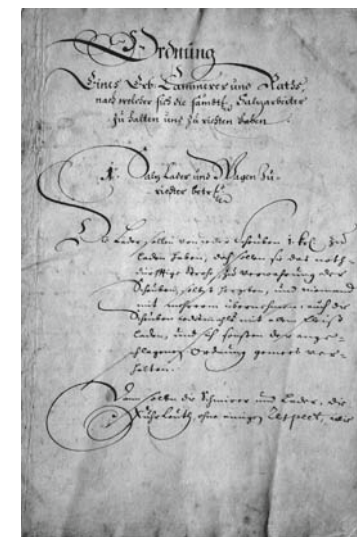 Ordnung
Eines Erb. Cammerer und Raths,
nach welcher sich die sämtl. Salzarbeiter
zu halten und zu richten haben
1. Salz Lader und Wagen zu-
richter betr.
Die Lader sollen von jeder Scheuben 1 kr. zu
laden haben, doch sollen sie das noth-
dürfftige Stroh zu verwahrung der
Scheuben, selbst, und niemand
mit mehrerm übernehmen, auch die
Scheuben mit allem Fleiß
laden, und sich sonsten der ange-
schlagenen Ordnung gemeeß ver-
halten.
Dann sollen die Schmirer und Lader, die
Fuhrleuth, ohne einigen Respect, wie